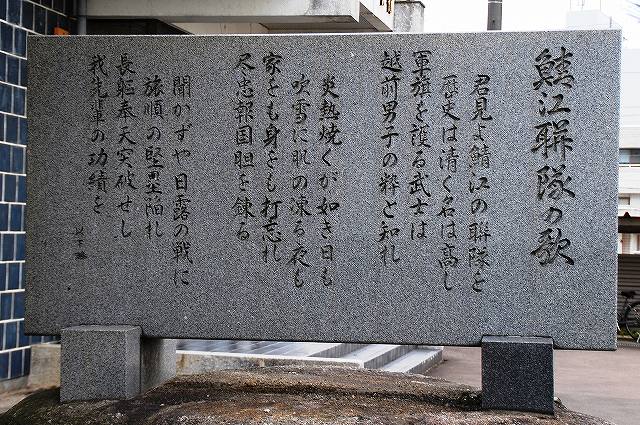 鯖江聯隊の歌
君見よ鯖江の聯隊を
歴史は清く名は高し
軍旗を護る武士は
越前男子の粋と知れ
炎熱焼くが如き日も
吹雪に肌の凍る夜も
家をも身をも打忘れ
尽忠報国胆を錬る
聞かずや日露の戦に
旅順の堅塁陥れ
長駆奉天突破せし
我先輩の功績を
以下略